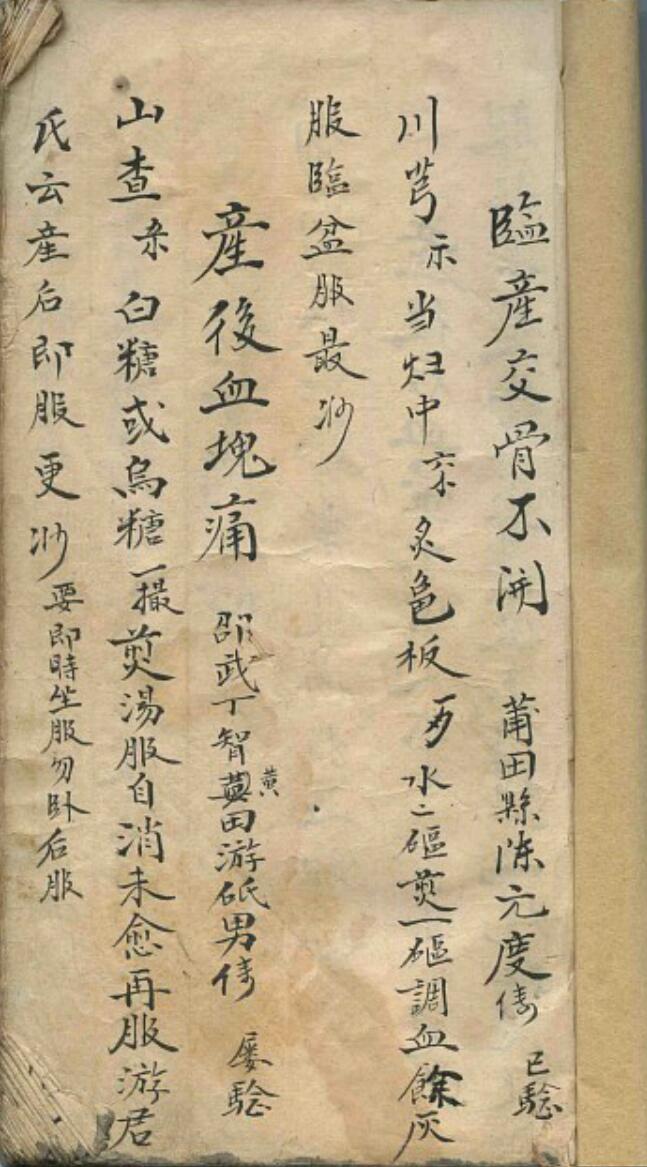 臨產交骨不開 莆田縣陈元度傳 已驗
川芎 当归中 炙龟板 水二碥煎一碥調血餘灰
服臨盆服最沙
產後血塊痛 邵武丁智黃田游砥男傳 屡驗
山查 白糖或烏糖一撮煎湯服自消未愈再服游君
氏云產后即服更沙 要即時坐服勿卧后服